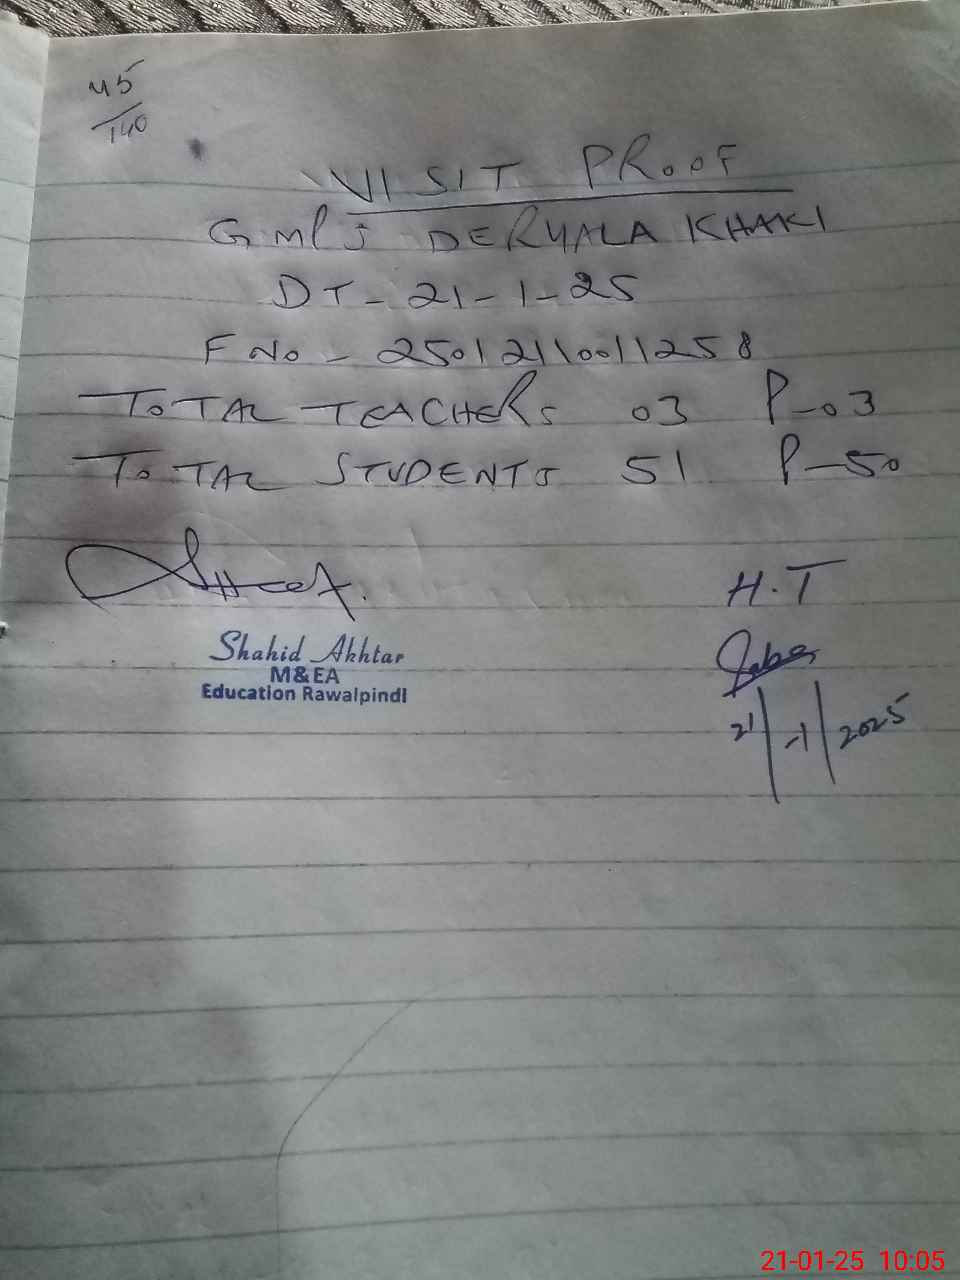 45
140
VISIT PROOF
GMPS DERYALA KHAKI
DT - 21-1-25
F No - 25012110011258
TOTAL TEACHERS 03 P-03
TOTAL STUDENTS 51 P-50
H.T
Shahid Akhtar
M&EA
Education Rawalpindi
21/-1/2025
21-01-25 10:05